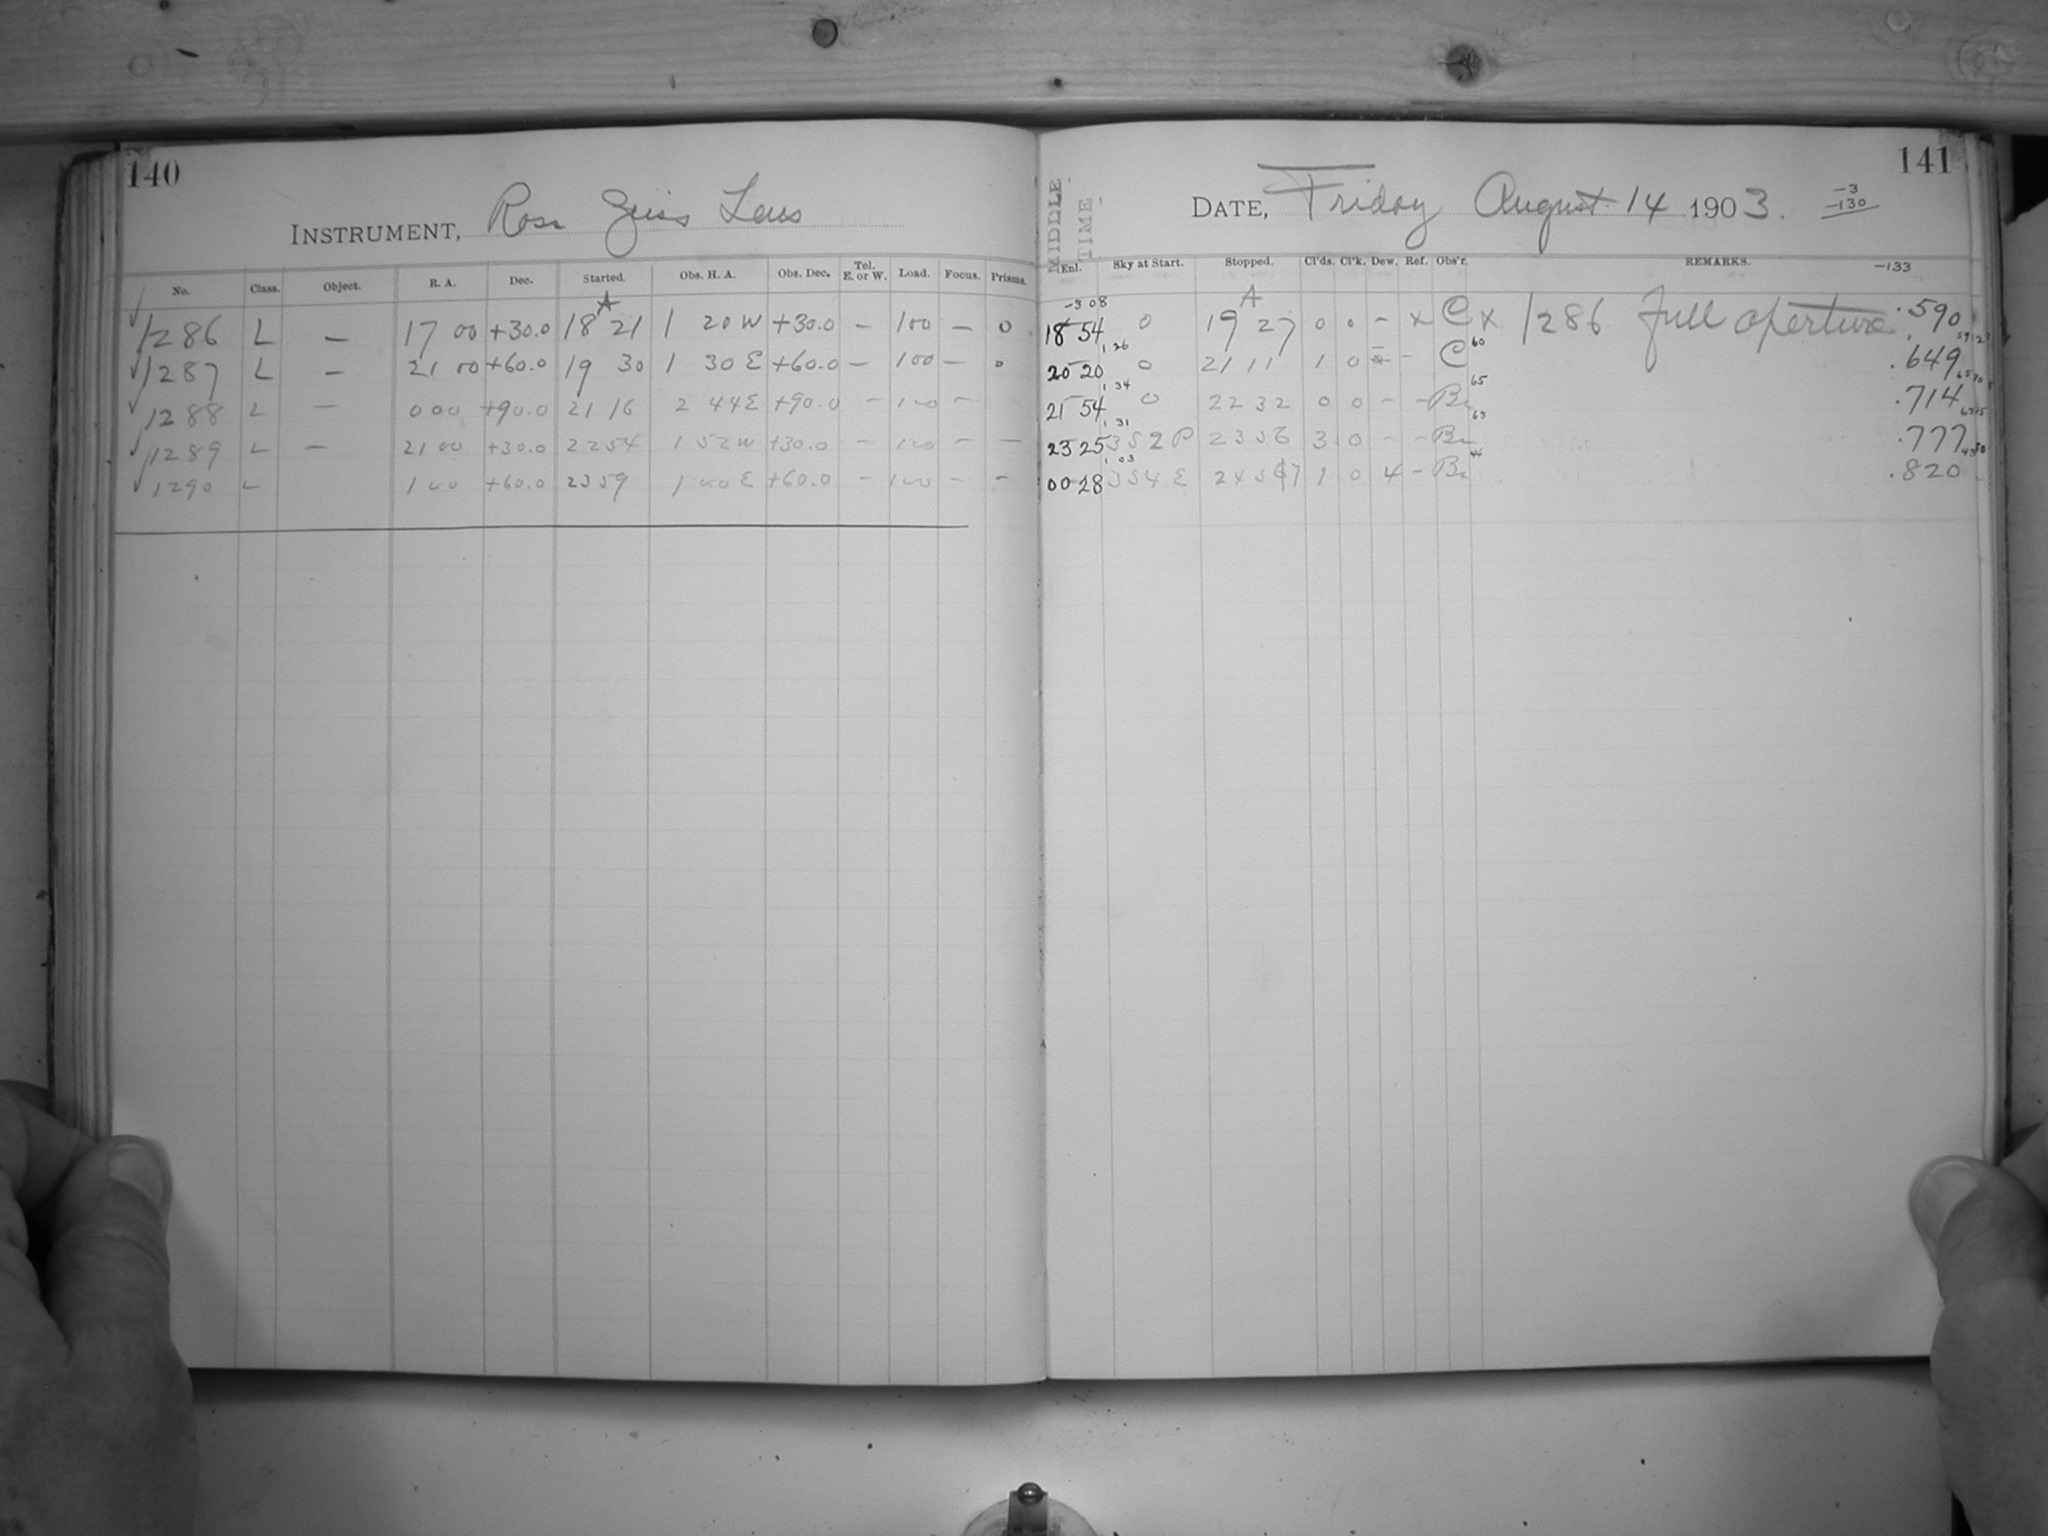 140
INSTRUMENT, Ross Zeiss Lens
No. Class. Object. R. A. Dec. Started. Obs. H. A. Obs. Dec. Tel. E. or W. Load. Focus. Prisms.
A
✓ 1286 L — 17 00 +30.0 18 21 1 20 W +30.0 — 100 — 0
✓ 1287 L — 21 00 +60.0 19 30 1 30 E +60.0 — 100 — 0
✓ 1288 L — 0 00 +90.0 21 16 2 44 E +90.0 — 100 —
✓ 1289 L — 21 00 +30.0 22 54 1 52 W +30.0 — 100 — —
✓ 1290 L 1 00 +60.0 23 59 1 00 E +60.0 — 100 — —
141
MIDDLE TIME.
DATE, Friday August 14 1903.
-3
-130
-133
Enl. Sky at Start. Stopped. Cl'ds. Cl'k. Dew. Ref. Obs'r. REMARKS.
-3 08 A
18 54 0 19 27 0 0 - x C x 1286 Full aperture .590
1 26 60
20 20 0 21 11 1 0 - C .649
1 34 65
21 54 0 22 32 0 0 - - Br .714
1 31 63
23 25 352 P 23 56 3 0 - - Br .777
1 03 44
00 28 354 E 24 57 1 0 4 - Br .820